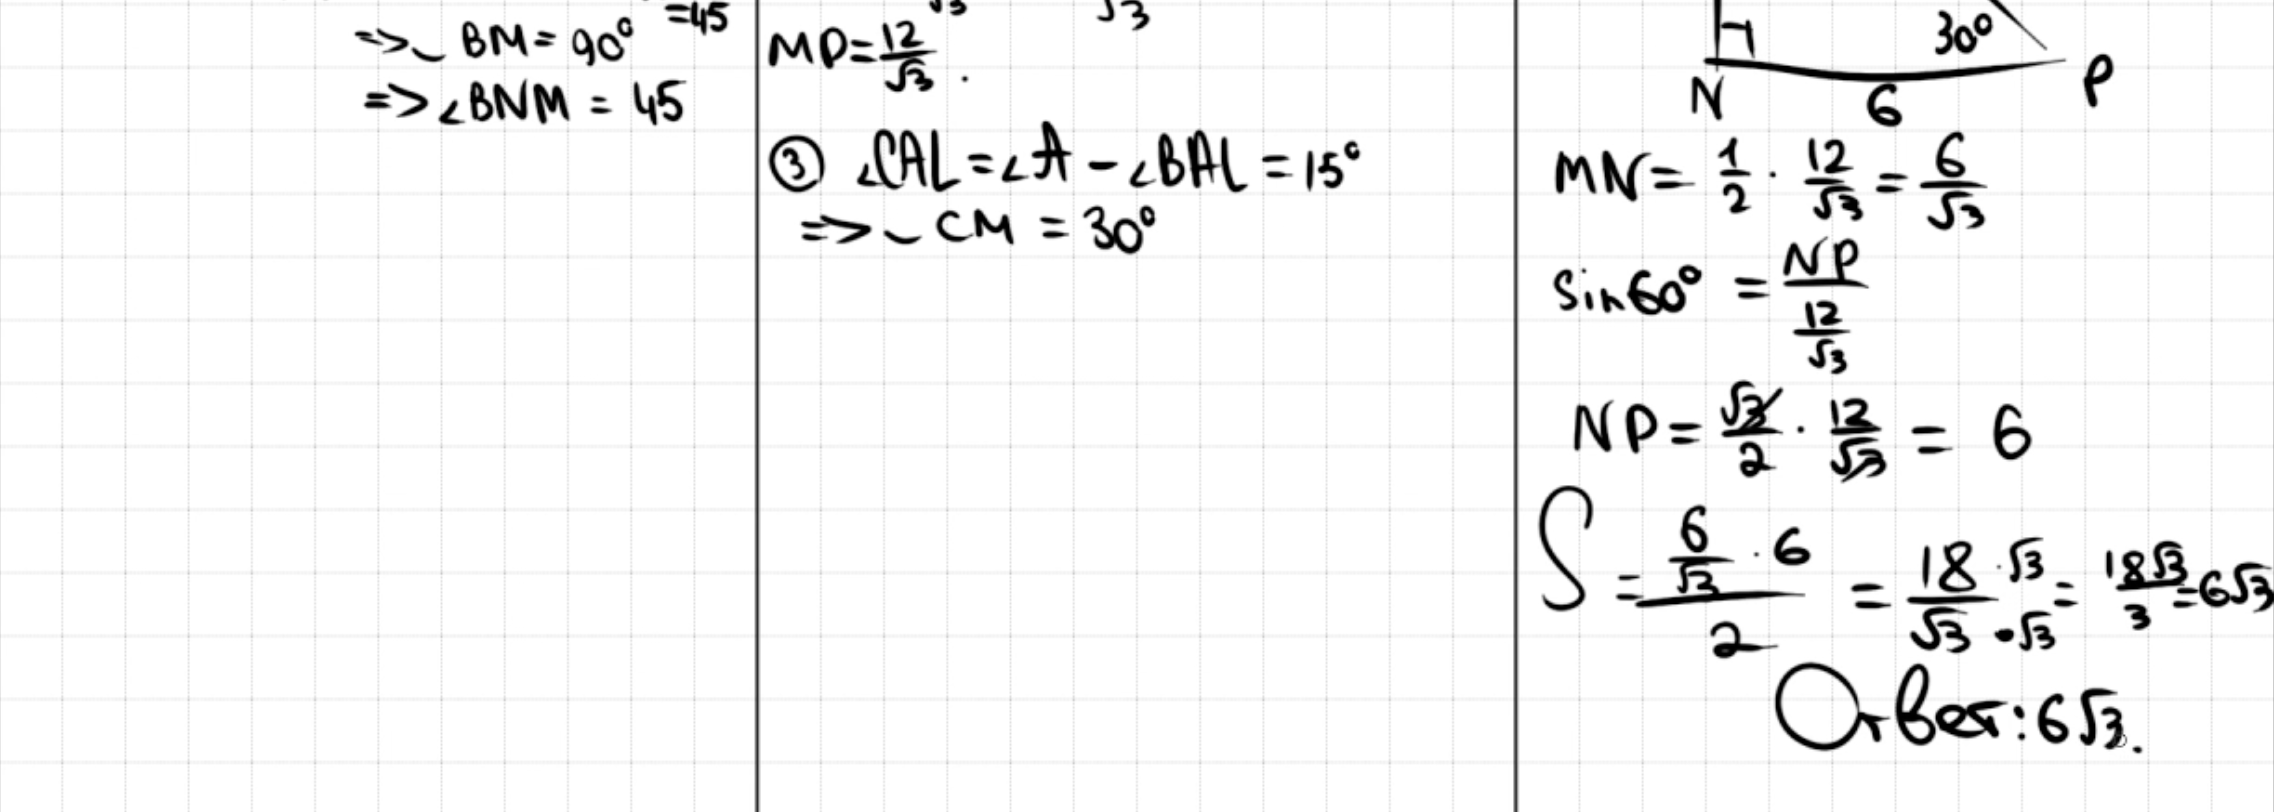 =45
=>◡ BM = 90°
=> ∠BNM = 45
√3
MP = 12/√3 .
③ ∠CAL = ∠A - ∠BAL = 15°
=> ◡ CM = 30°
30°
N 6 P
MN = 1/2 · 12/√3 = 6/√3
sin60° = NP/(12/√3)
NP = √3/2 · 12/√3 = 6
S = (6/√3 · 6)/2 = 18·√3/√3·√3 = 18√3/3 = 6√3
Ответ: 6√3.